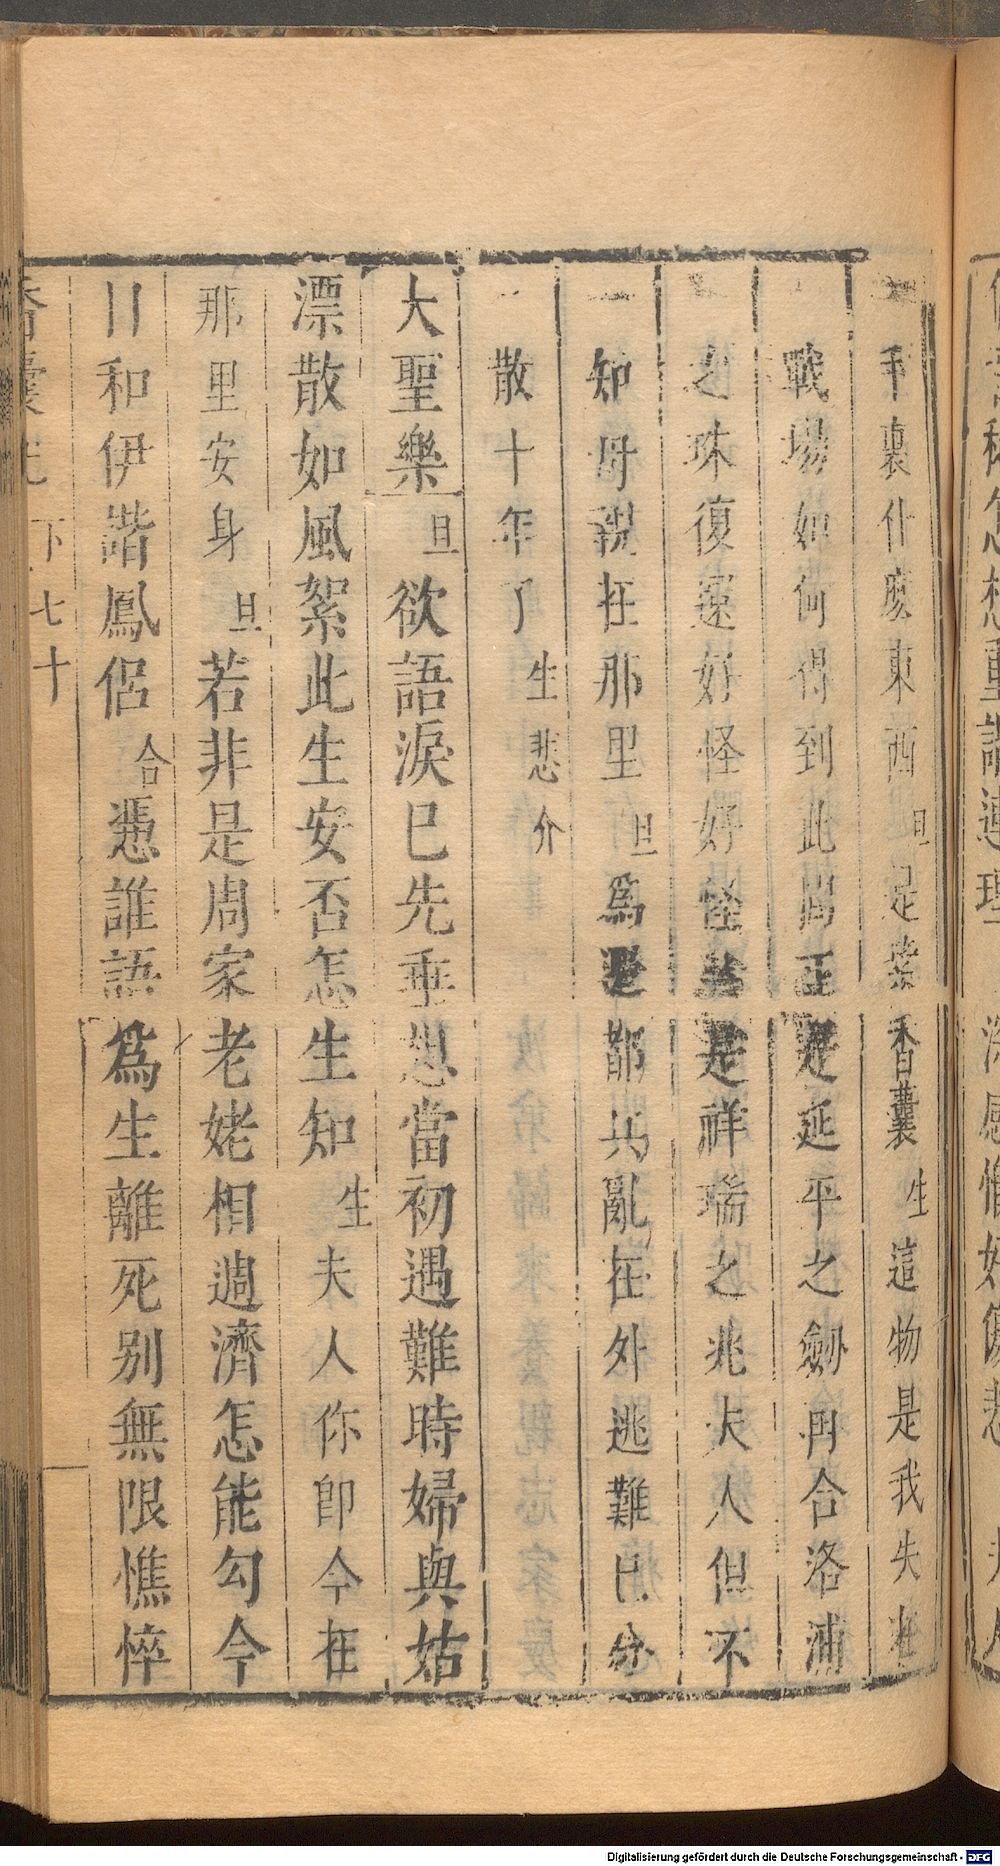 手裏什麽東西旦是紫香囊生這物是我失在
戰場如何得到此間正是延平之劒再合洛浦
之珠復還好怪好怪是祥瑞之兆夫人但不
知母親在那里旦爲都兵亂在外逃難已分
散十年了生悲介
大聖樂旦欲語淚巳先垂想當初遇難時婦與姑
漂散如風絮此生安否怎生知生夫人你卽今在
那里安身旦若非是周家老姥相週濟怎能勾今
日和伊諧鳳侶合慿誰語爲生離死別無限憔悴
香囊記 下 七十
Digitalisierung gefördert durch die Deutsche Forschungsgemeinschaft - DFG